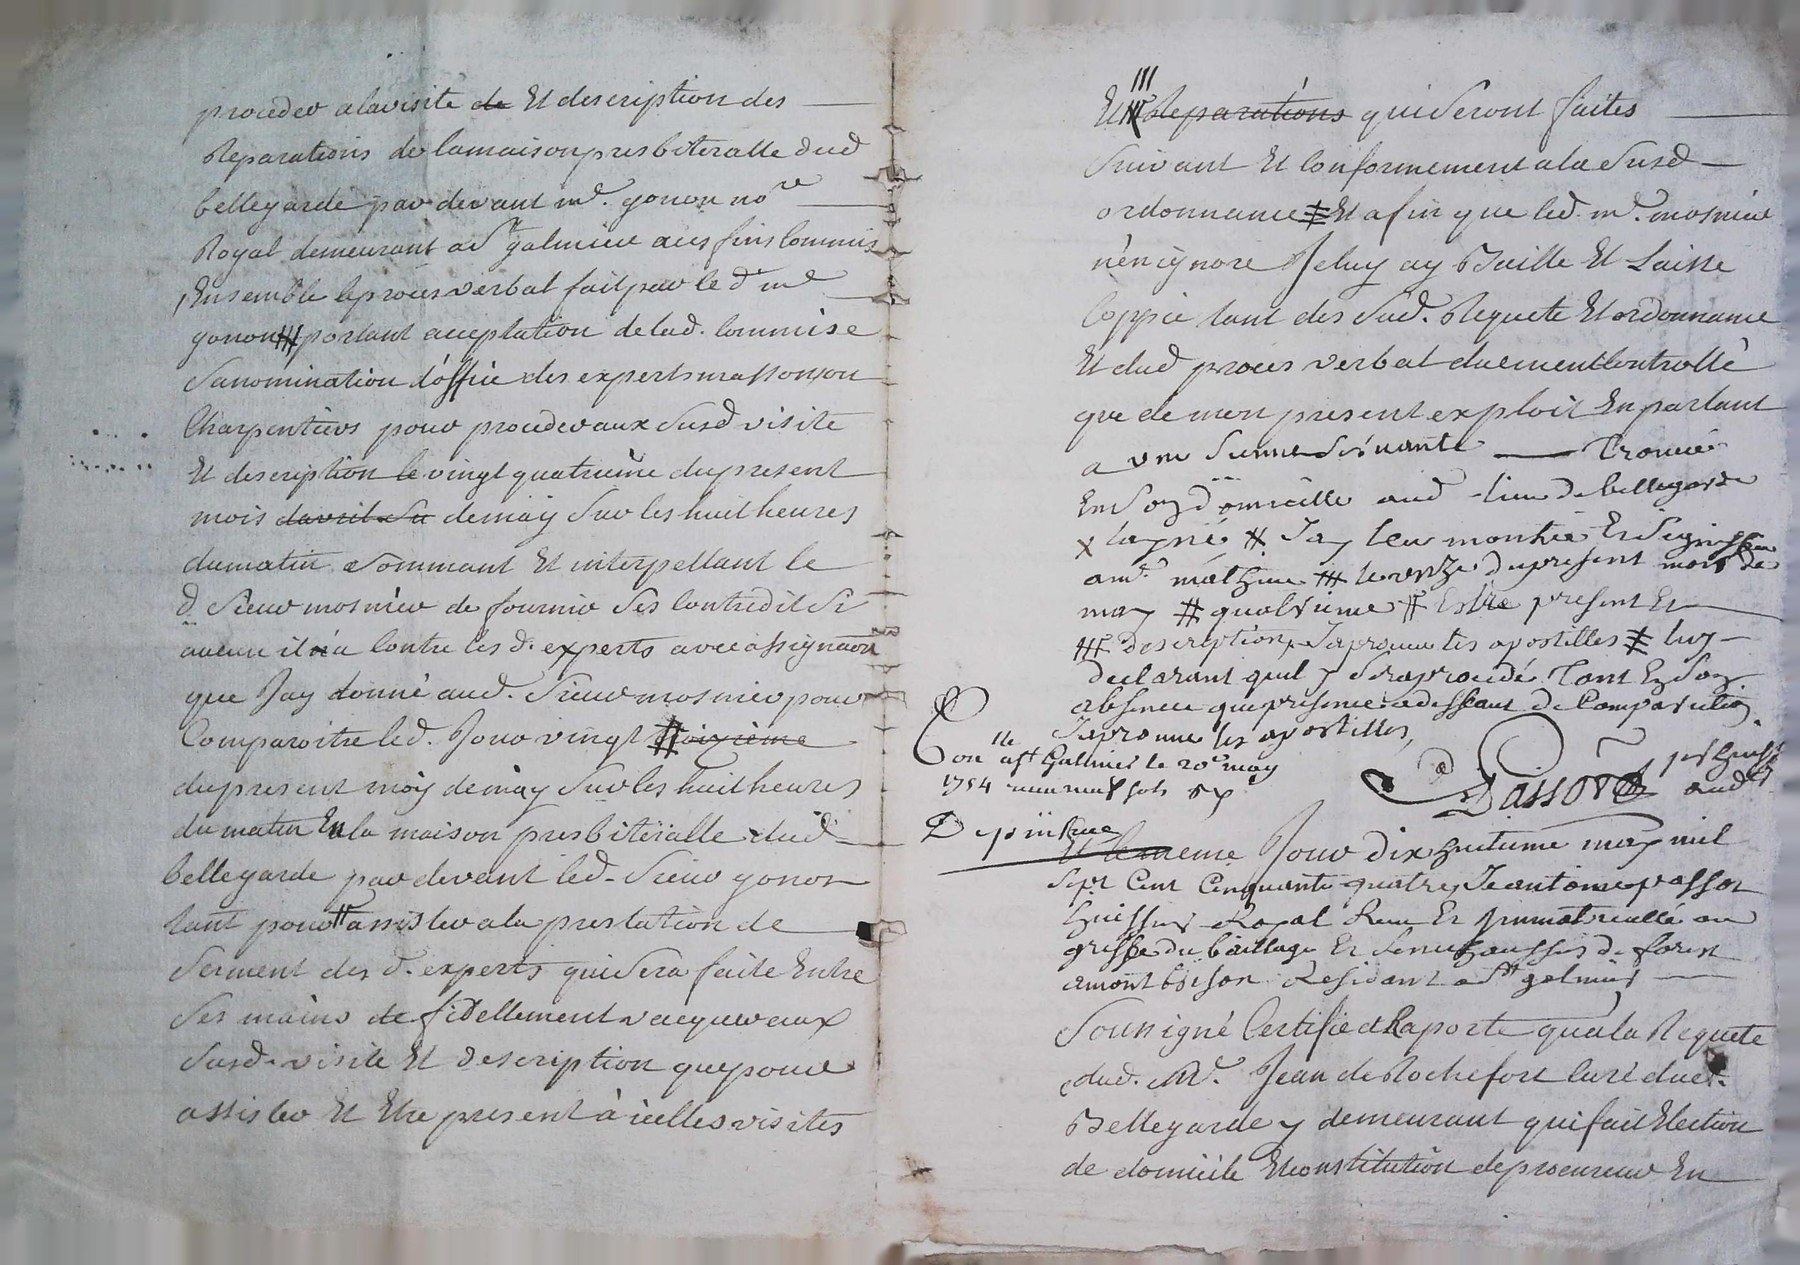 proceder a la visite de Et description des
Reparations de la maison presbiteralle dud
bellegarde par devant mᵉ. gonon noʳᵉ
Royal demeurant a Sᵗ galmier a ces fins Commis
Ensemble le proces verbal fait par le dᵗ mᵉ
gonon portant acceptation de lad. Commise
Sa nomination d'office des experts massons ou
Charpentiers pour proceder aux Susd visite
Et description le vingt quatrieme du present
mois d'avril Su de may Sur les huit heures
du matin Sommant Et interpellant le
d. Sieur mosnier de fournir Ses Contredit Si
aucun il n'a Contre les d. experts avec assignaon
que Jay donné aud. Sieur mosnier pour
Comparoitre led. Jour vingt troizieme
du present mois de may Sur les huit heures
du matin En la maison presbiteralle dud
bellegarde par devant led. Sieur gonon
tant pour assister a la prestation de
Serment des d. experts qui Sera faite Entre
Ses mains de fidellement vacquer aux
Susd. visite Et description que pour
assister Et Etre present à icelles visites
Et Reparations qui Seront faites
Suivant Et Conformement a la Susd
ordonnance Et afin que led. mᵉ. mosnier
n'en ignore Je luy ay Baille Et Laisse
Coppie tant des Sud. Requete Et ordonnance
Et dud proces verbal duement Controllé
que de mon present exploit En parlant
a une Sienne Servante Trouvée
En Son domicille aud lieu de bellegarde
x Jay Leu montré Et Signiffié
a mᵉ. mathieu le onze du present mois de
may # quatrieme # Estre present Et
description Japrouve les apostilles luy
declarant quil y Sera procedé Tant En Son
absence que presence a deffaut de Comparution.
Japrouve les apostilles,
Conˡˡᵉ a Sᵗ Galmier le 20ᵉ may
1754 neuf sols
Passot
Et le meme Jour dix huitieme may mil
Sept Cent Cinquante quatre, Je antoine passot
huissier Royal Receu Et immatriculle au
greffe du bailliage Et Senechaussée de forest
a montbrison Residant a Sᵗ galmier
Soussigné Certifie et Raporte qu'a la Requete
dud. Mʳᵉ. Jean de Rochefort Curé dud.
Bellegarde y demeurant qui fait Election
de domicile Et constitution de procureur En